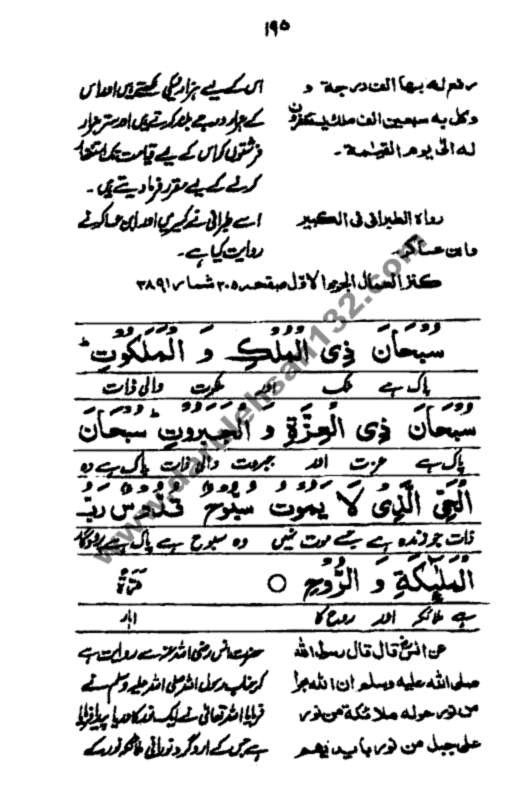 ۱۹۵
رفع له بها الف درجة و
وكل به سبعين الف ملك يستغفرون
له الى يوم القيٰمة۔
رواه الطبرانى فى الكبير
وابن عساكر۔
اس کے لیے ہزار نیکی لکھتے ہیں اور اس
کے ہزار درجے بلند کرتے ہیں اور ستر ہزار
فرشتوں کو اس کے لیے قیامت تک استغفار
کرنے کے لیے مقرر فرما دیتے ہیں۔
اسے طبرانی نے کبیر میں اور ابن عساکر نے
روایت کیا ہے۔
كنز العمال الجزء الاول صفحه ۲۰۵ شمار ۳۸۹۱
سُبْحَانَ ذِى الْمُلْكِ وَ الْمَلَكُوْتِ ط
پاک ہے ملک اور ملکوت والی ذات
سُبْحَانَ ذِى الْعِزَّةِ وَ الْجَبَرُوْتِ ط سُبْحَانَ
پاک ہے عزت اور جبروت والی ذات پاک ہے وہ
الْحَىِّ الَّذِىْ لَا يَمُوْتُ سُبُّوْحٌ قُدُّوْسٌ رَبُّ
ذات جو زندہ ہے جسے موت نہیں وہ سبوح ہے پاک ہے پروردگار
الْمَلٰٓئِكَةِ وَ الرُّوْحِ ○
ہے ملائکہ اور روح کا
عن انسؓ قال قال رسول الله
صلى الله عليه وسلم ان لله بحرا
من نور حوله ملائكة من نور
على جبل من نور بايديهم
حضرت انس رضی اللہ عنہ سے روایت ہے
کہ جناب رسول اللہ صلی اللہ علیہ وسلم نے
فرمایا اللہ تعالیٰ نے ایک نور کا دریا پیدا فرمایا
ہے جس کے ارد گرد نورانی ملائکہ نور کے
www.darulehsan132.com